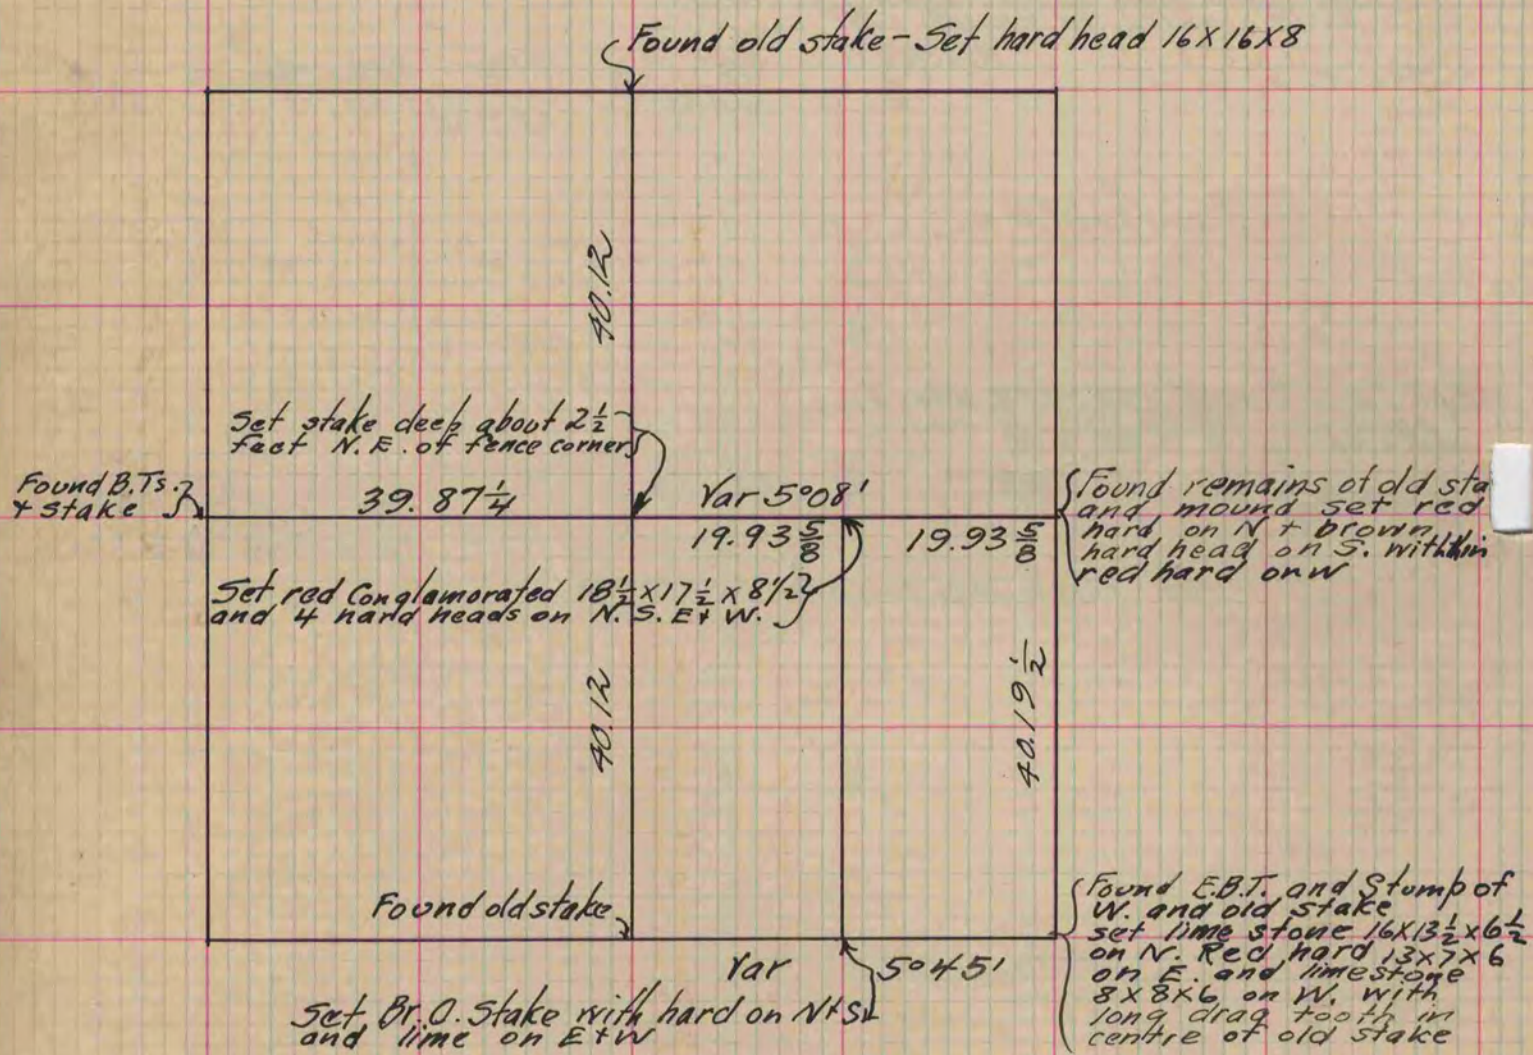 Found old stake - Set hard head 16 X 16 X 8
40.12
Set stake deep about 2½
feet N.E. of fence corner
Found B.Ts.
+ stake
39.87¼
Var 5°08'
19.93⅝
19.93⅝
Found remains of old sta
and mound set red
hard on N + brown
hard head on S. with thin
red hard on W
Set red Conglamorated 18½ x 17½ x 8½
and 4 hard heads on N. S. E + W.
40.12
40.19½
Found old stake
Found E.B.T. and Stump of
W. and old stake
set lime stone 16X13½x6½
on N. Red hard 13x7x6
on E. and limestone
8X8X6 on W. with
long drag tooth in
centre of old stake
Var 5°45'
Set Br.O. Stake with hard on N+S
and lime on E+W